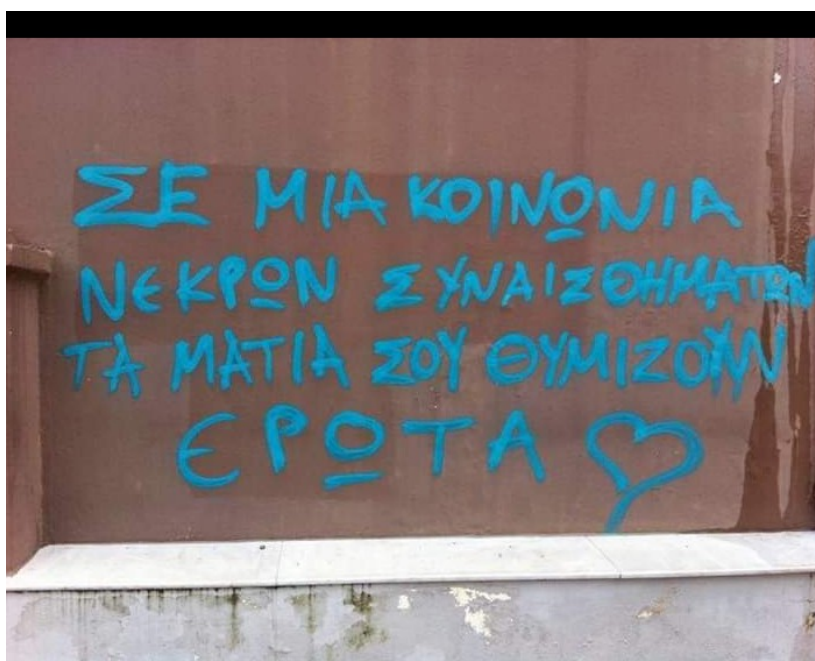 ΣΕ ΜΙΑ ΚΟΙΝΩΝΙΑ
ΝΕΚΡΩΝ ΣΥΝΑΙΣΘΗΜΑΤΩΝ
ΤΑ ΜΑΤΙΑ ΣΟΥ ΘΥΜΙΖΟΥΝ
ΕΡΩΤΑ